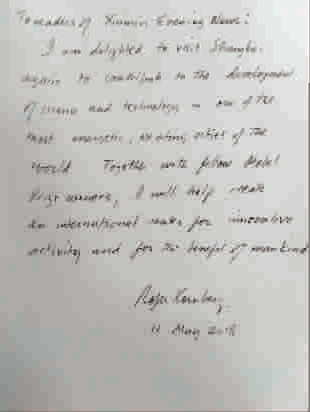 To readers of Xinmin Evening News:
I am delighted to visit Shanghai
again to contribute to the development
of science and technology in one of the
most energetic, exciting cities of the
world. Together with fellow Nobel
Prize winners, I will help create
an international center for innovative
activity and for the benefit of mankind
Roger Kornberg
11 May 2018